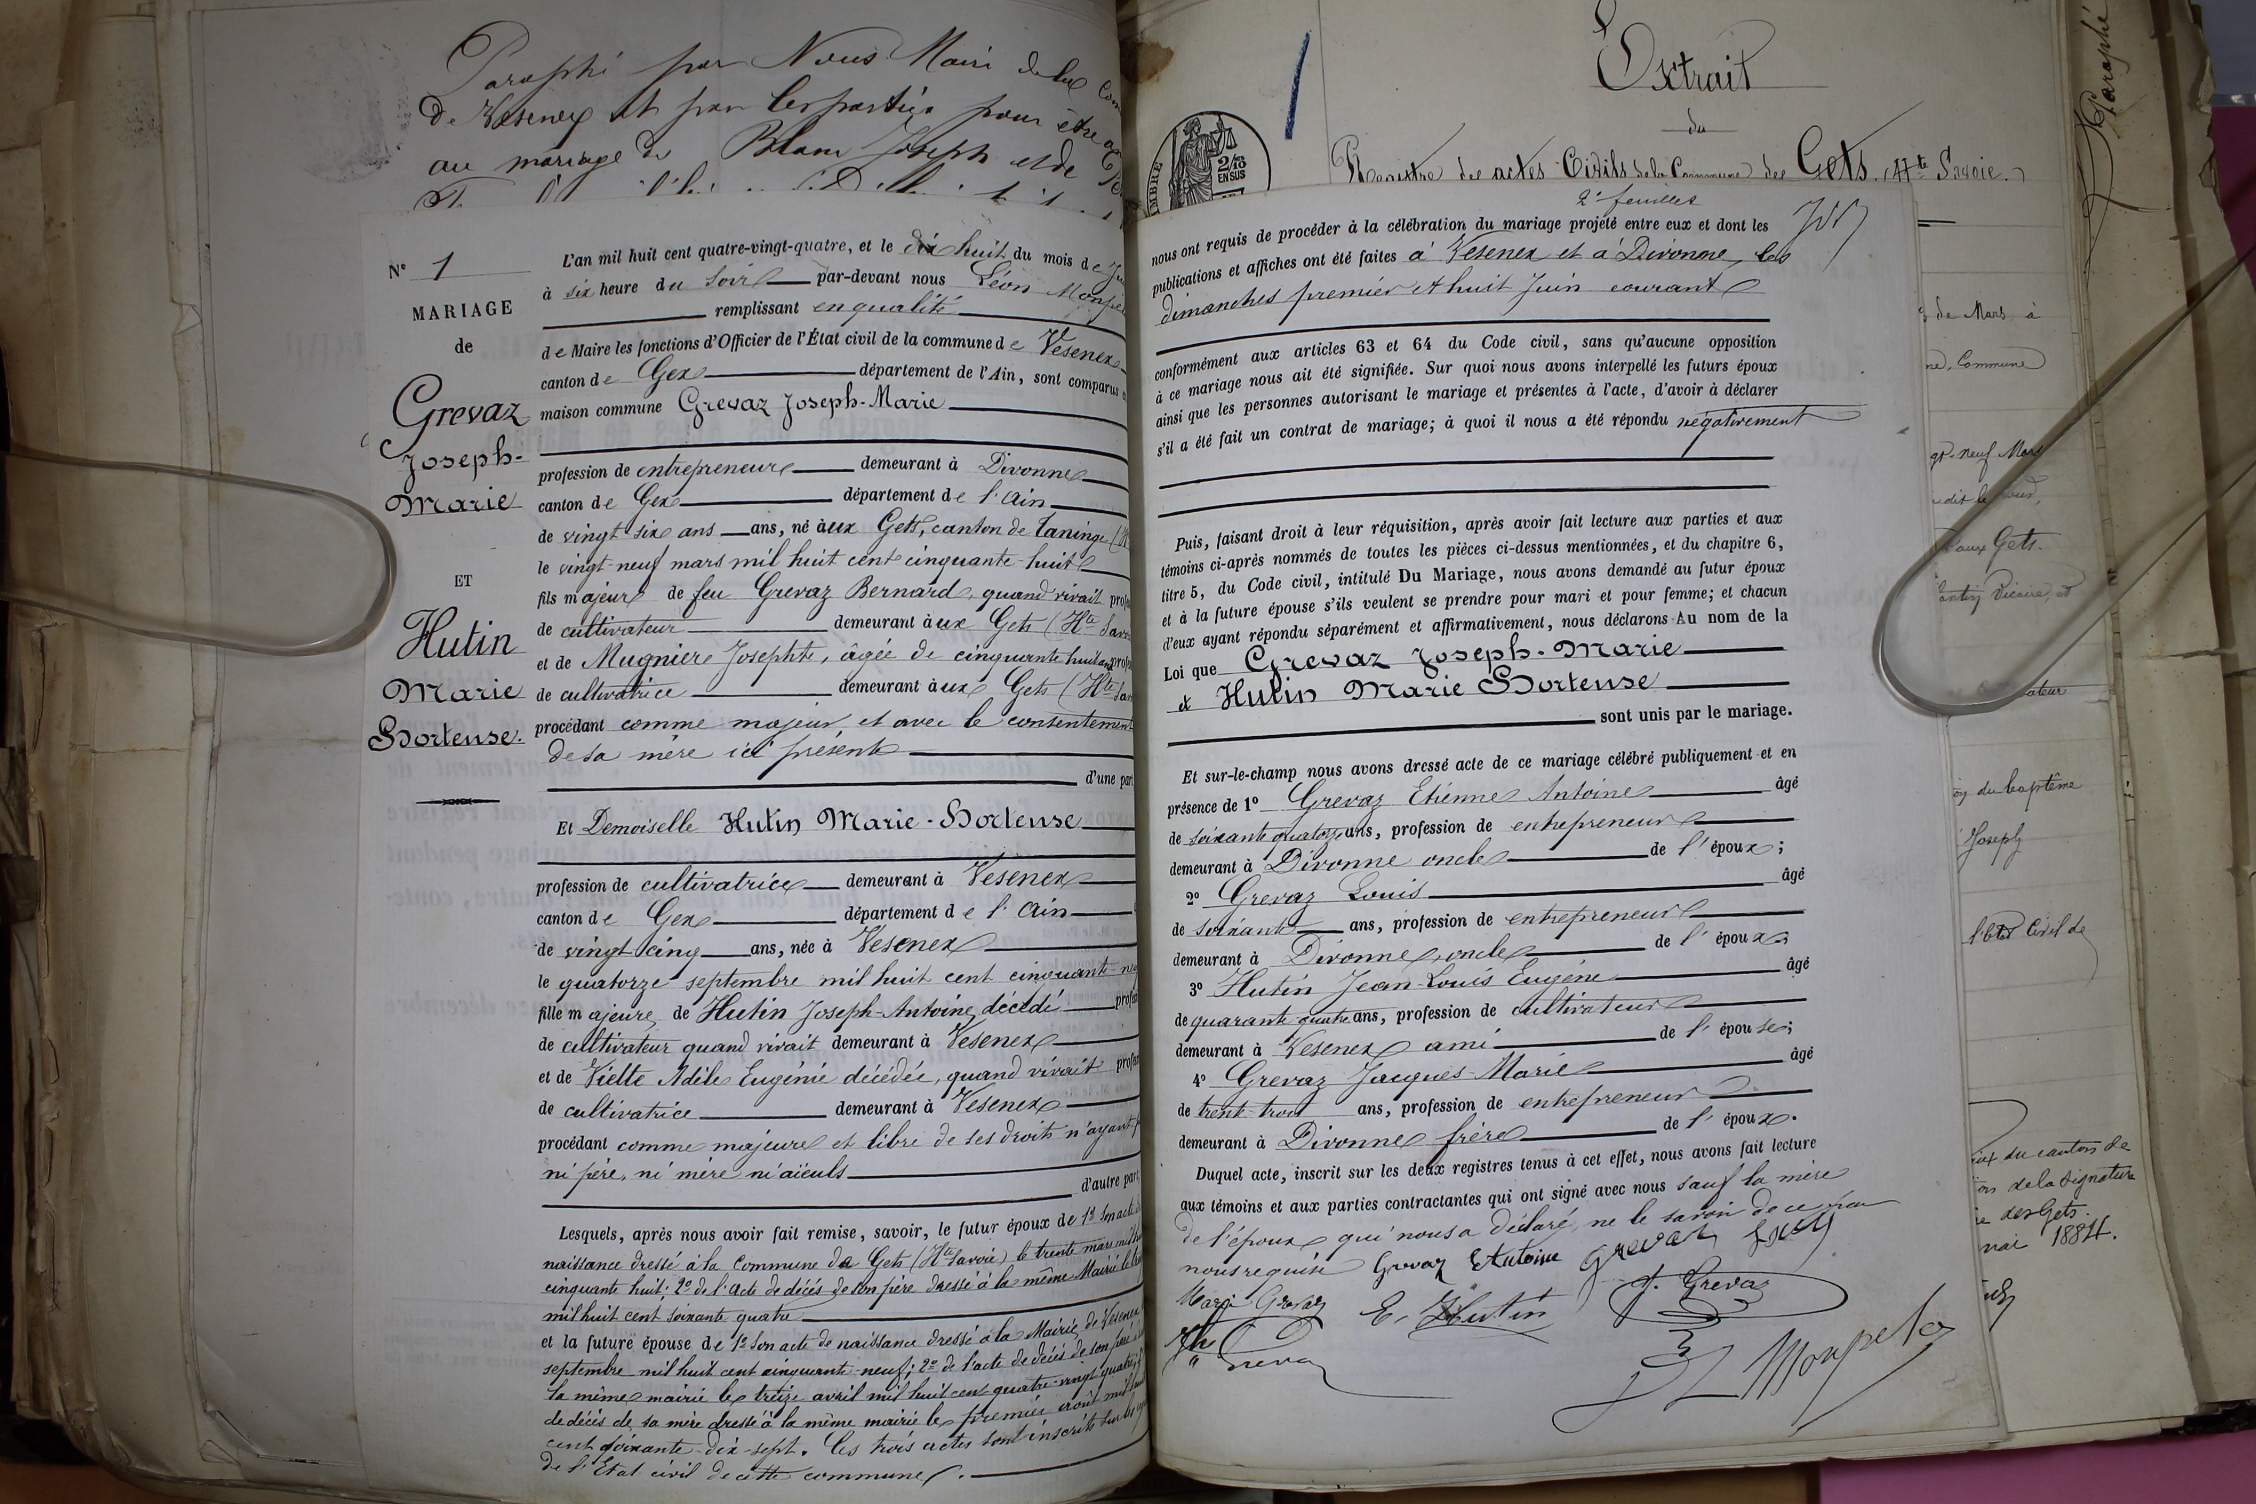 Paraphé par Nous Maire de la Com
de Vesenex et par les parties pour être
au mariage de Blanc Joseph et de
N° 1
MARIAGE
de
Grevaz
Joseph-
Marie
ET
Hutin
Marie
Hortense.
L'an mil huit cent quatre-vingt-quatre, et le dix huit du mois de
à six heure du soir par-devant nous Léon
remplissant en qualité
de Maire les fonctions d'Officier de l'État civil de la commune de Vesenex
canton de Gex département de l'Ain, sont comparus
maison commune Grevaz Joseph-Marie
profession de entrepreneur demeurant à Divonne
canton de Gex département de l'Ain
de vingt six ans ans, né à ux Gets, canton de Taninge (H
le vingt-neuf mars mil huit cent cinquante-huit
fils majeur de feu Grevaz Bernard, quand vivait
de cultivateur demeurant à ux Gets (Hte Savoie
et de Mugnier Josephte, âgée de cinquante huit ans
de cultivatrice demeurant à ux Gets (Hte
procédant comme majeur, et avec le consentement
de sa mère ici présente
d'une part
Et Demoiselle Hutin Marie-Hortense
profession de cultivatrice demeurant à Vesenex
canton de Gex département de l'Ain
de vingt cinq ans, née à Vesenex
le quatorze septembre mil huit cent cinquante-neuf
fille majeure de Hutin Joseph-Antoine, décédé
de cultivateur quand vivait demeurant à Vesenex
et de Vielte Adèle Eugénie décédée, quand vivait
de cultivatrice demeurant à Vesenex
procédant comme majeure et libre de ses droits n'ayant
ni père, ni mère ni aïeuls
d'autre part
Lesquels, après nous avoir fait remise, savoir, le futur époux de 1° Son acte
naissance dressé à la commune de Gets (Hte Savoie) le trente mars mil
cinquante huit; 2° de l'acte de décès de son père dressé à la même Mairie le
mil huit cent soixante quatre
et la future épouse de 1° son acte de naissance dressé à la Mairie de Vesenex
septembre mil huit cent cinquante-neuf; 2° de l'acte de décès de son père
la même mairie le treize avril mil huit cent quatre-vingt quatre
de décès de sa mère dressé à la même mairie le premier août mil
cent soixante-dix-sept. Les trois actes sont inscrits sur les
de l'Etat civil de cette commune.
Extrait
du
Registre des actes Civils de la Commune des Gets (Hte Savoie.)
TIMBRE
2/10
EN SUS
2e feuillet
nous ont requis de procéder à la célébration du mariage projeté entre eux et dont les
publications et affiches ont été faites à Vesenex et à Divonne, les
dimanches premier et huit Juin courant
conformément aux articles 63 et 64 du Code civil, sans qu'aucune opposition
à ce mariage nous ait été signifiée. Sur quoi nous avons interpellé les futurs époux
ainsi que les personnes autorisant le mariage et présentes à l'acte, d'avoir à déclarer
s'il a été fait un contrat de mariage; à quoi il nous a été répondu négativement
Puis, faisant droit à leur réquisition, après avoir fait lecture aux parties et aux
témoins ci-après nommés de toutes les pièces ci-dessus mentionnées, et du chapitre 6,
titre 5, du Code civil, intitulé Du Mariage, nous avons demandé au futur époux
et à la future épouse s'ils veulent se prendre pour mari et pour femme; et chacun
d'eux ayant répondu séparément et affirmativement, nous déclarons Au nom de la
Loi que Grevaz Joseph-Marie
et Hutin Marie Hortense
sont unis par le mariage.
Et sur-le-champ nous avons dressé acte de ce mariage célébré publiquement et en
présence de 1° Grevaz Etienne Antoine âgé
de soixante quatorze ans, profession de entrepreneur
demeurant à Divonne oncle de l'époux;
2° Grevaz Louis âgé
de soixante ans, profession de entrepreneur
demeurant à Divonne, oncle de l'époux;
3° Hutin Jean-Louis Eugène âgé
de quarante quatre ans, profession de cultivateur
demeurant à Vesenex ami de l'épouse;
4° Grevaz Jacques-Marie âgé
de trente-trois ans, profession de entrepreneur
demeurant à Divonne frère de l'époux.
Duquel acte, inscrit sur les deux registres tenus à cet effet, nous avons fait lecture
aux témoins et aux parties contractantes qui ont signé avec nous sauf la mère
de l'époux qui nous a déclaré, ne le savoir de ce
nous requise Grevaz E Antoine Grevaz Louis
Marie Grevaz E. Hutin J. Grevaz
Jh Grevaz
Paraphé
de Mars à
ne, Commune
gt-neuf Mars
aux Gets.
Vicaire, et
du baptême
Joseph
l'Etat Civil de
du canton de
de la signature
des Gets.
mai 1884.